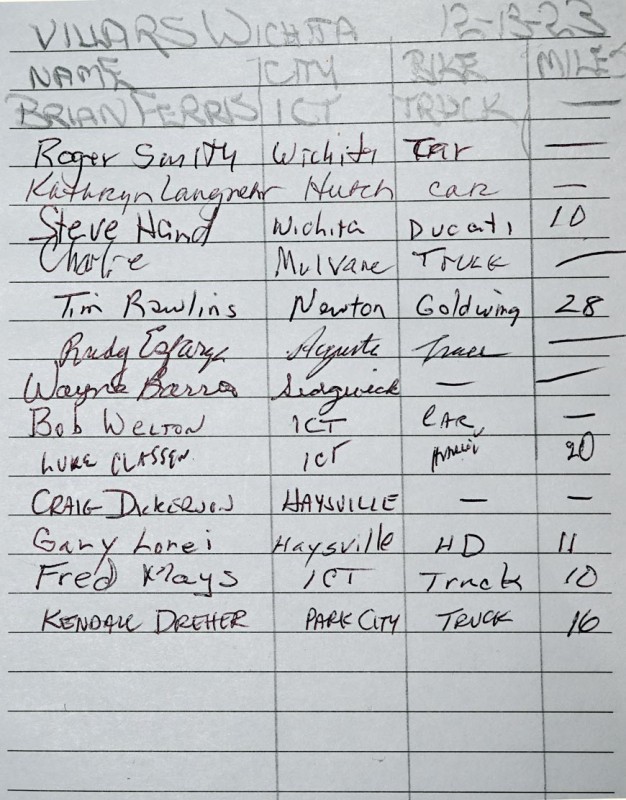 VILLARS WICHITA 12-13-23
NAME CITY BIKE MILES
BRIAN FERRIS ICT TRUCK —
Roger Smith Wichita Car —
Kathryn Langnehr Hutch car —
Steve Hand Wichita Ducati 10
Charlie Mulvane Truck —
Tim Rawlins Newton Goldwing 28
Rudy Augusta —
Wayne Sedgwick — —
Bob Welton ICT CAR —
LUKE CLASSEN ICT 20
CRAIG DICKERSON HAYSVILLE — —
Gary Lorei Haysville HD 11
Fred Mays ICT Truck 10
KENDALL DREHER PARK CITY TRUCK 16